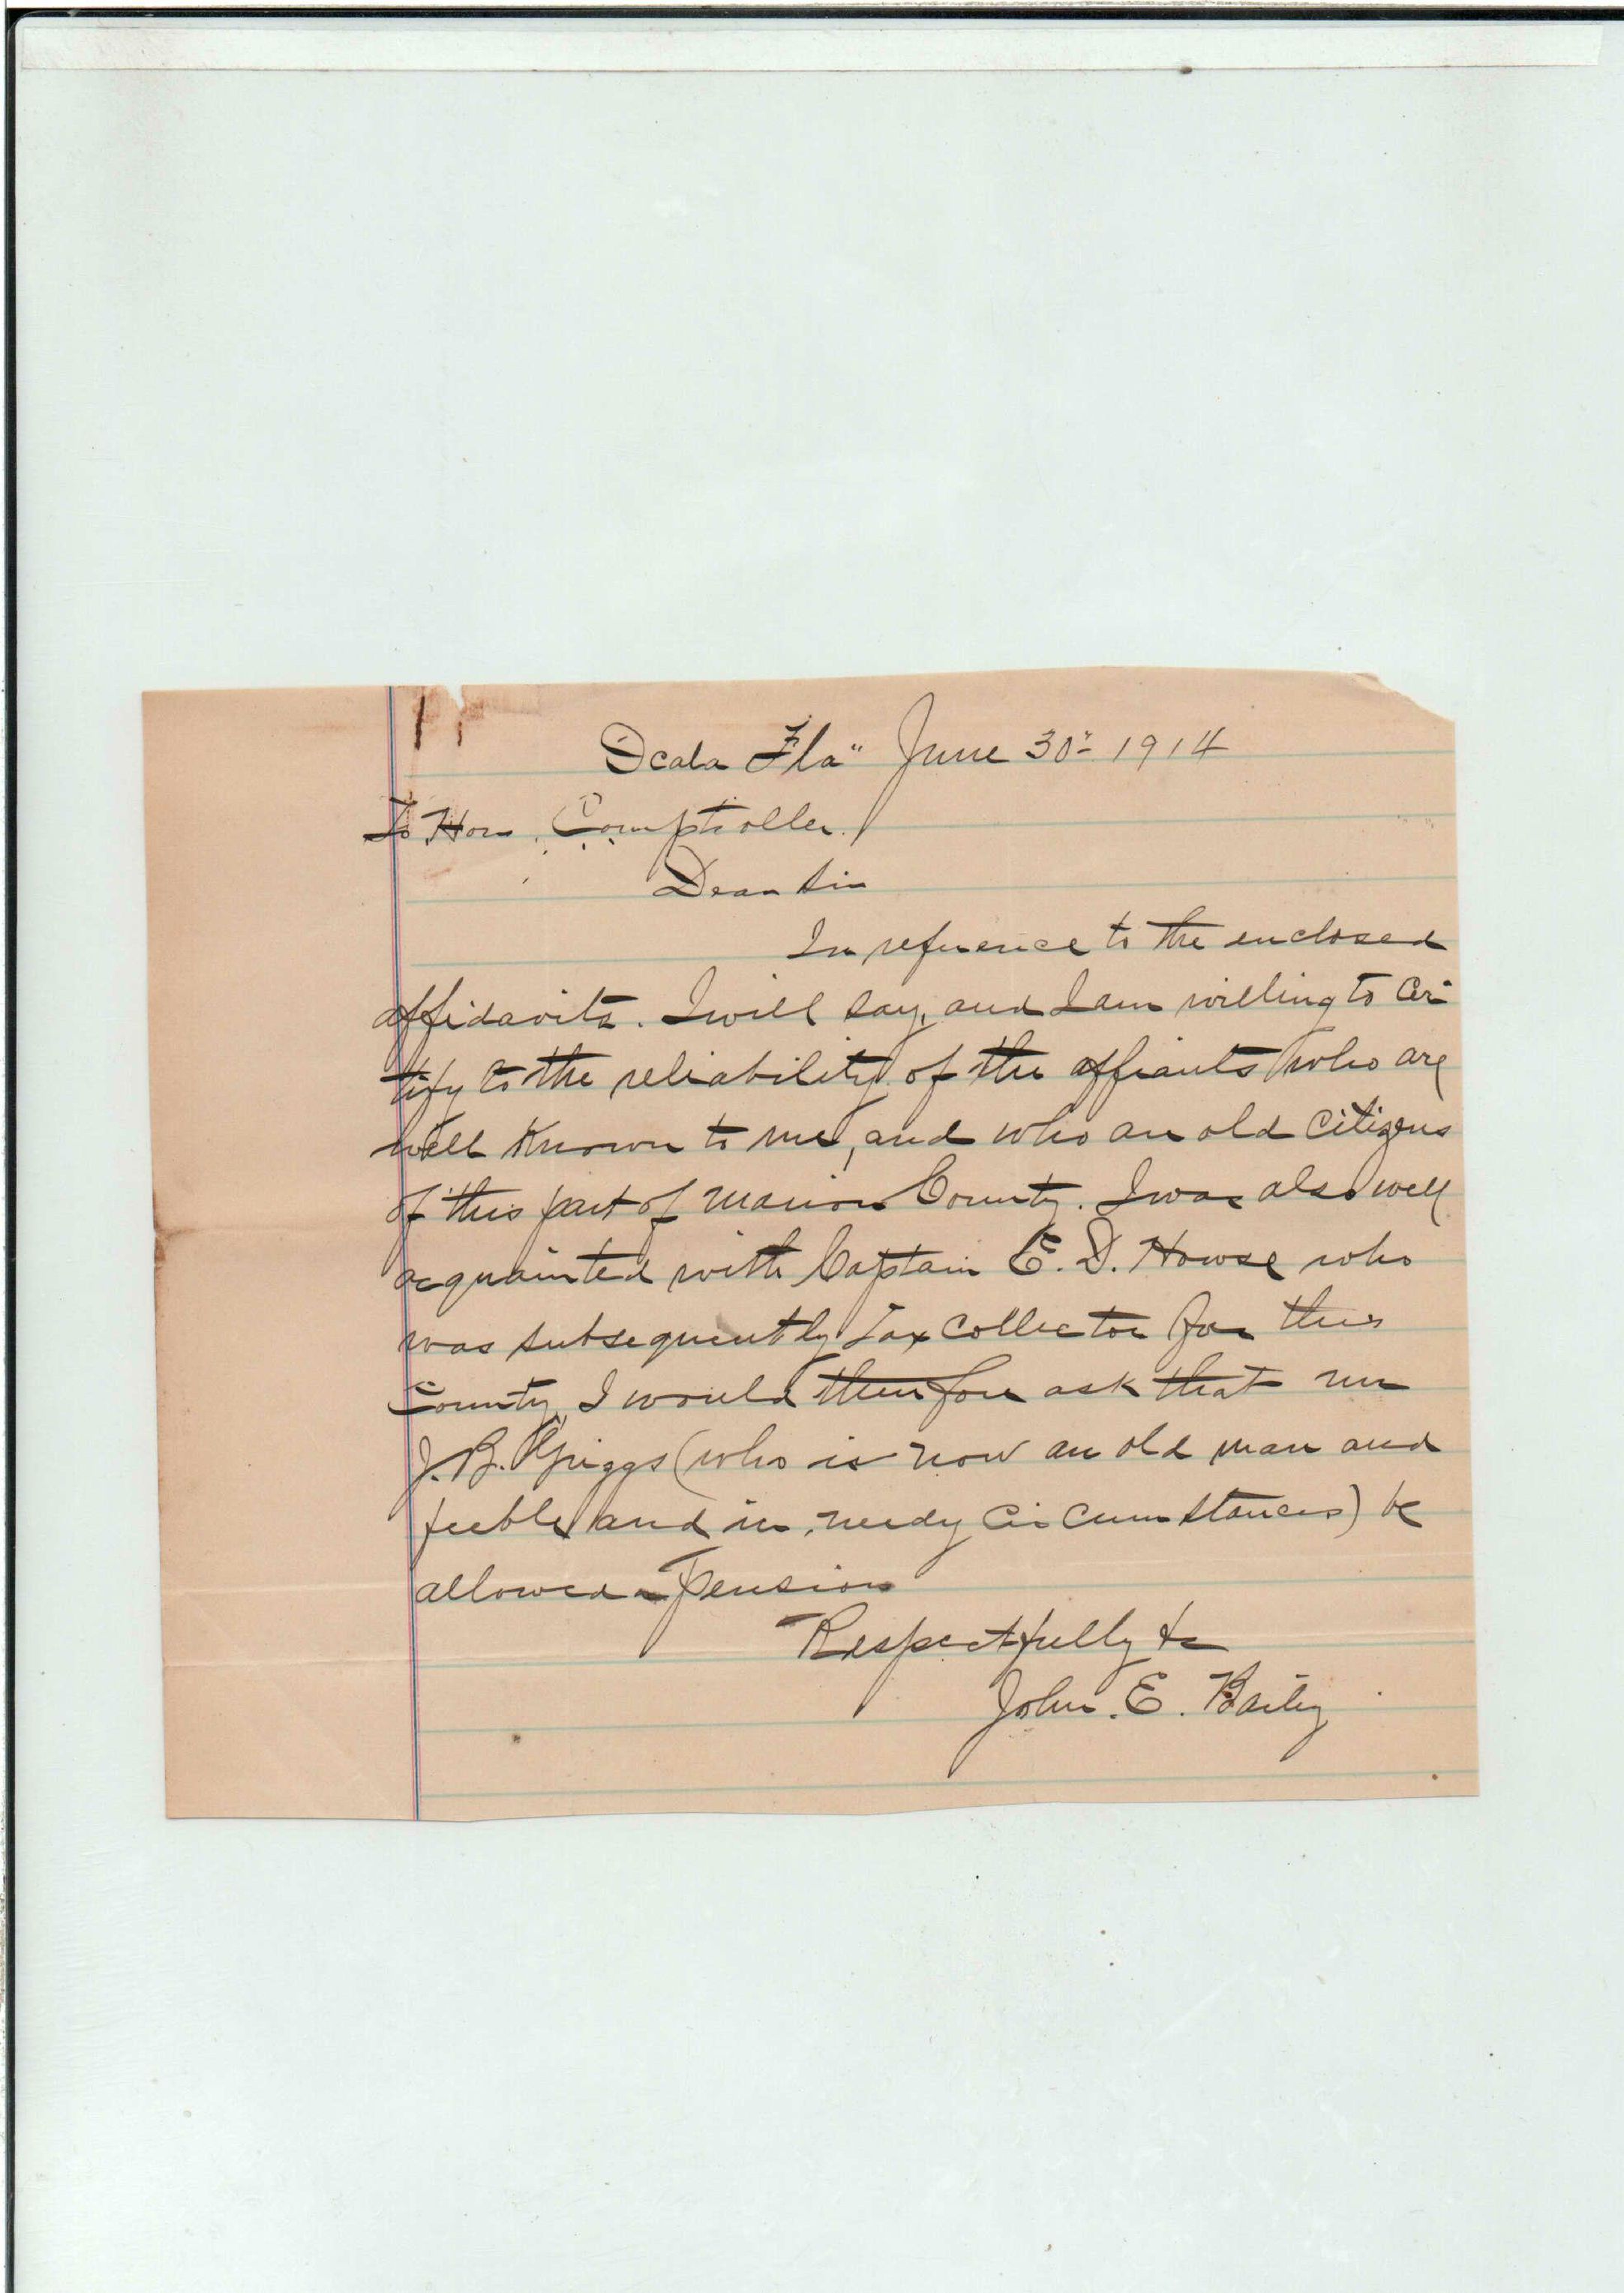 Ocala Fla" June 30" 1914
To Hon. Comptroller.
Dear Sir
In reference to the enclosed
affidavits. I will say, and I am willing to cer-
tify to the reliability of the affiants who are
well known to me, and who are old citizens
of this part of Marion County. I was also well
acquainted with Captain E. D. Howse who
was subsequently Tax Collector for this
County, I would therefore ask that Mr
J. B. Griggs (who is now an old man and
feeble and in needy circumstances) be
allowed a Pension
Respectfully &c
John. E. Baily